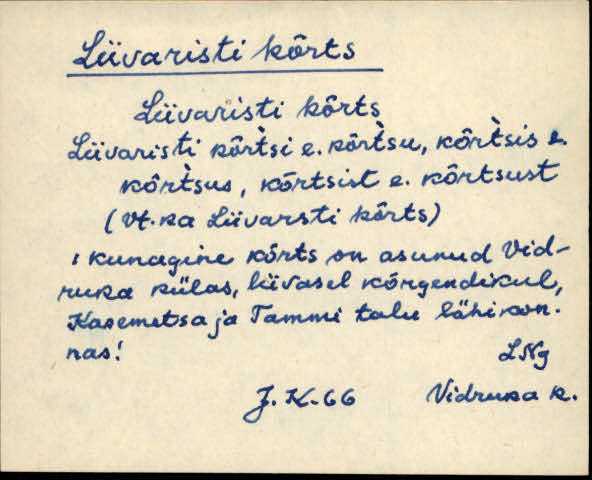 Liivaristi kõrts
Liivaristi kõrts
Liivaristi kõr̀tsi e. kõr̀tsu, kõr̀tsis e.
kõrtsus, kõrtsist e. kõrtsust
(vt. ka Liivarsti kõrts)
: kunagine kõrts on asunud Vid-
ruka külas, liivasel kõrgendikul,
Kasemetsa ja Tammi talu lähikon-
nas!
LNg
J. K-66 Vidruka k.